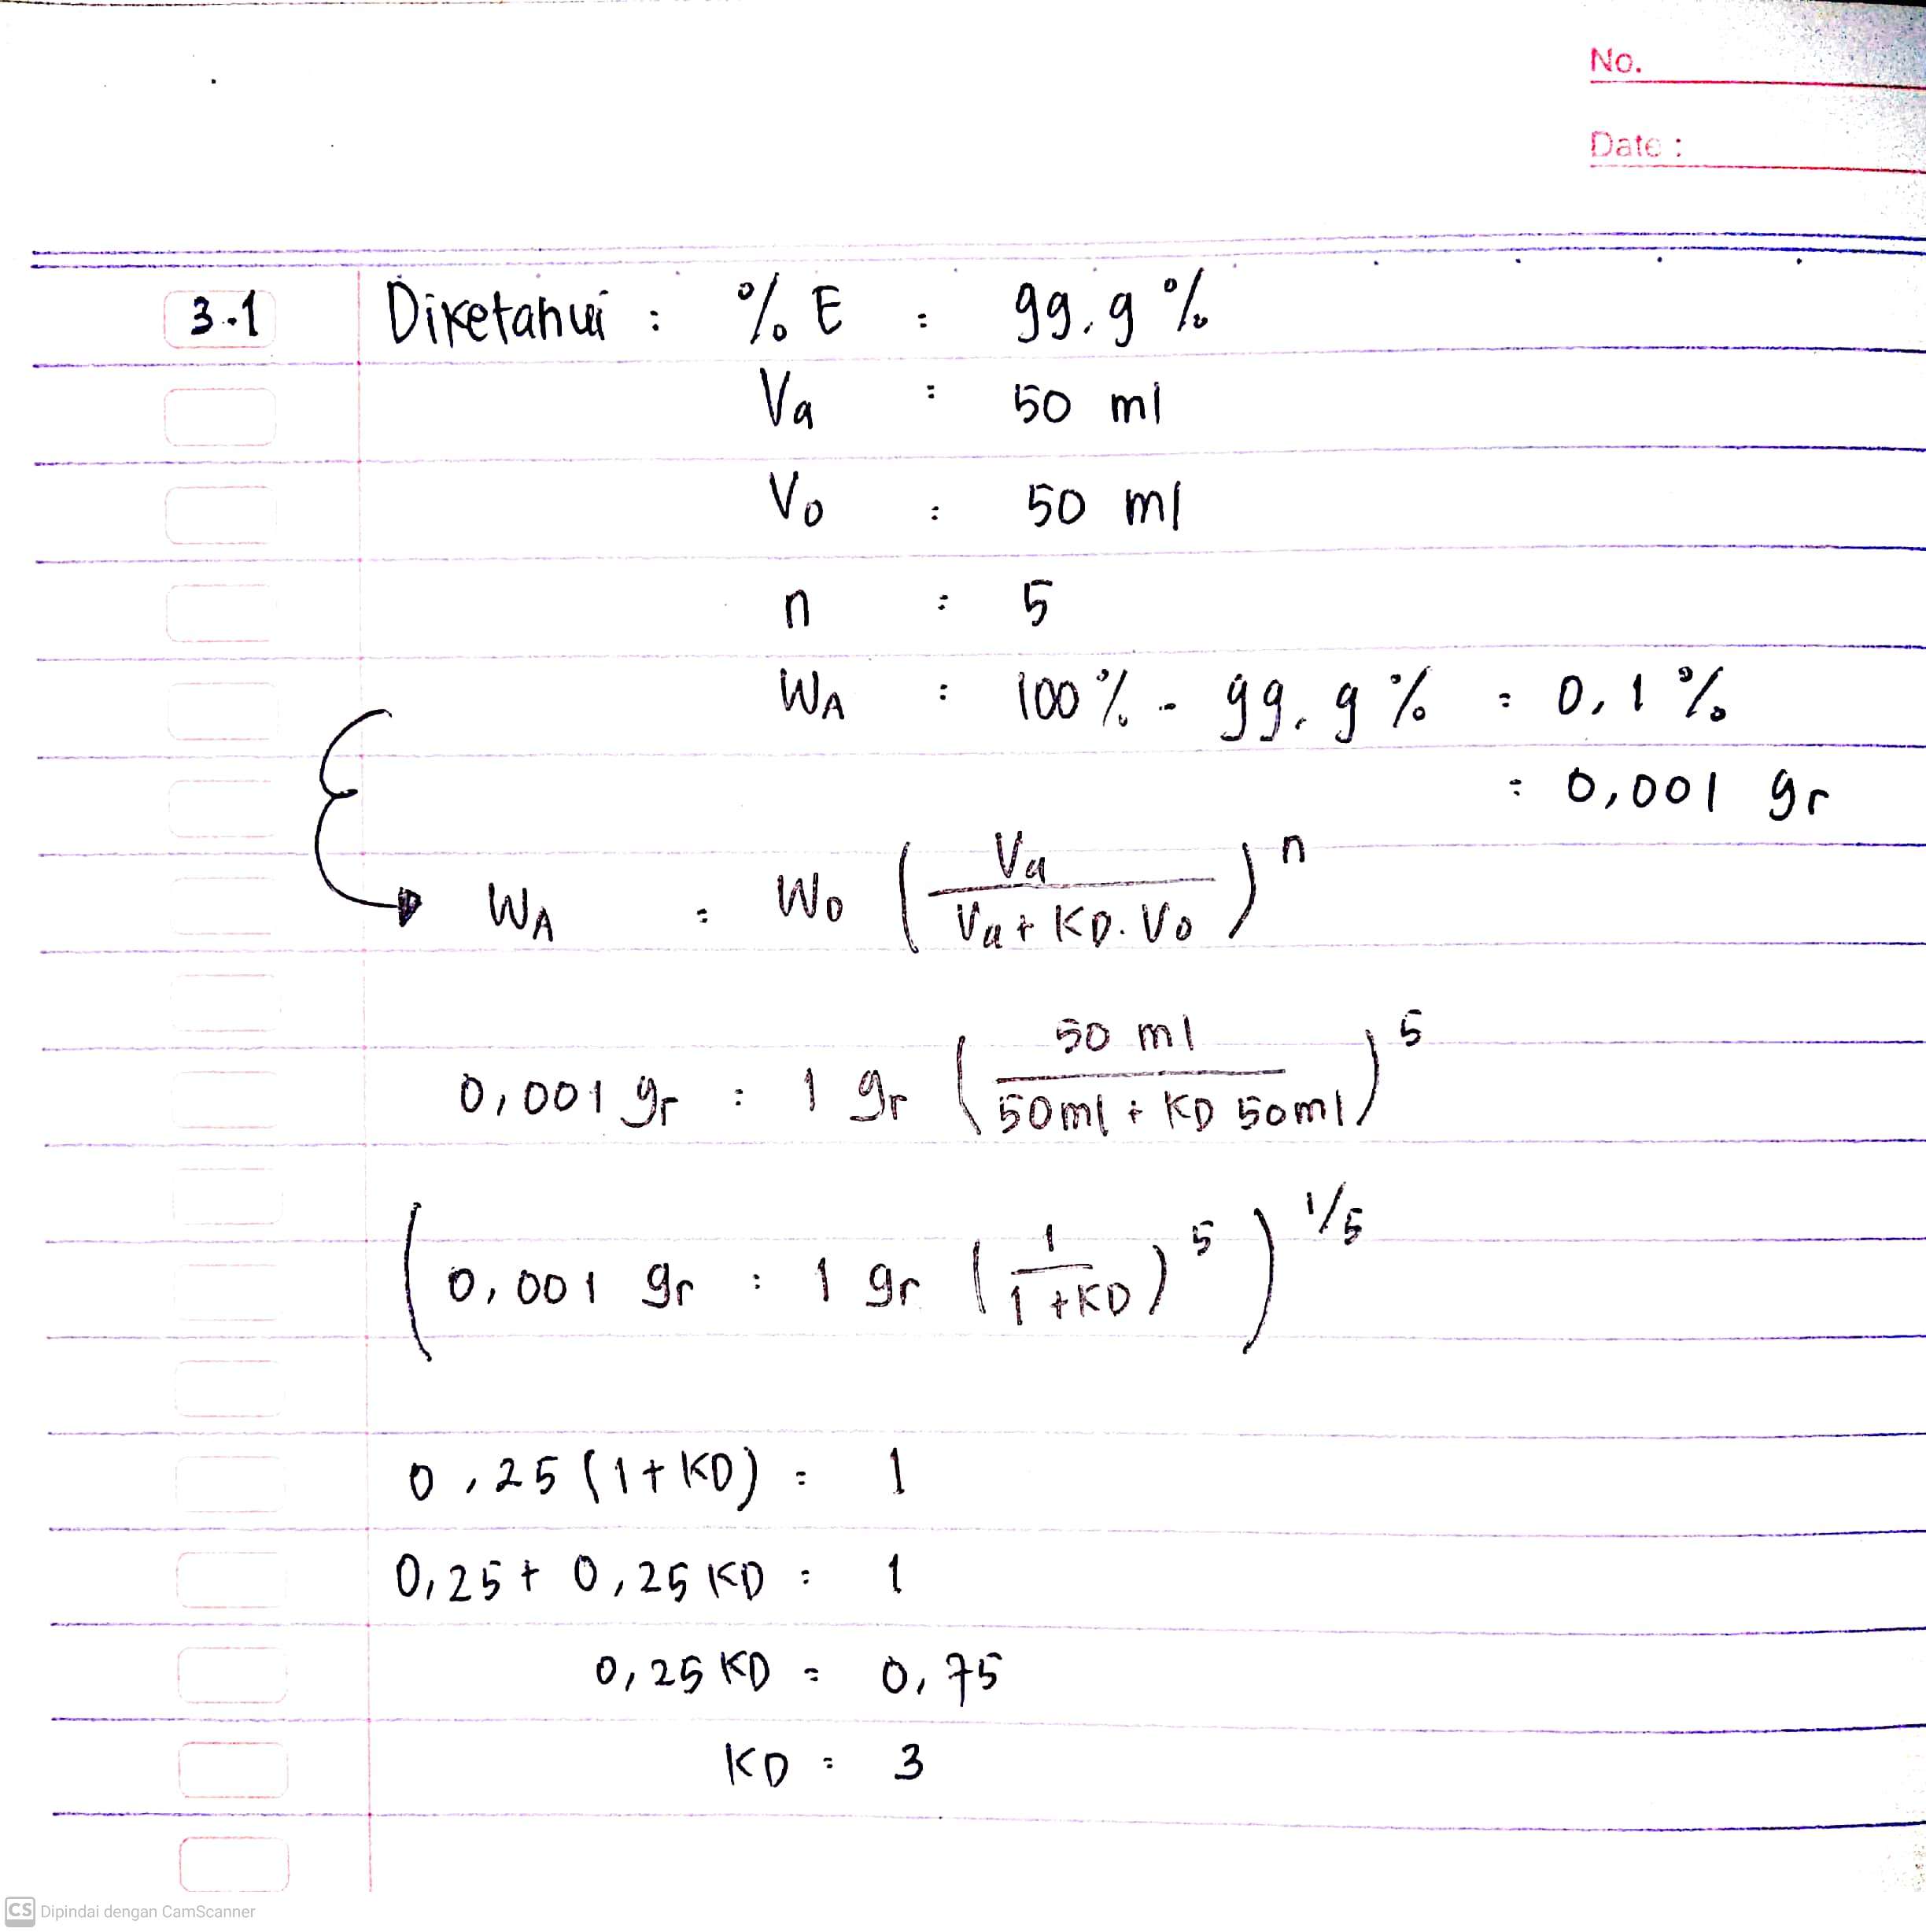 No.
Date :
3.1 Diketahui : % E : 99,9 %
Va : 50 ml
Vo : 50 ml
n : 5
WA : 100 % - 99,9 % = 0,1 %
= 0,001 gr
WA = Wo ( Va / Va + KD. Vo )^n
0,001 gr = 1 gr ( 50 ml / 50ml + KD 50ml )^5
( 0,001 gr = 1 gr ( 1 / 1 + KD )^5 )^1/5
0,25 (1 + KD) = 1
0,25 + 0,25 KD = 1
0,25 KD = 0,75
KD = 3
CS Dipindai dengan CamScanner